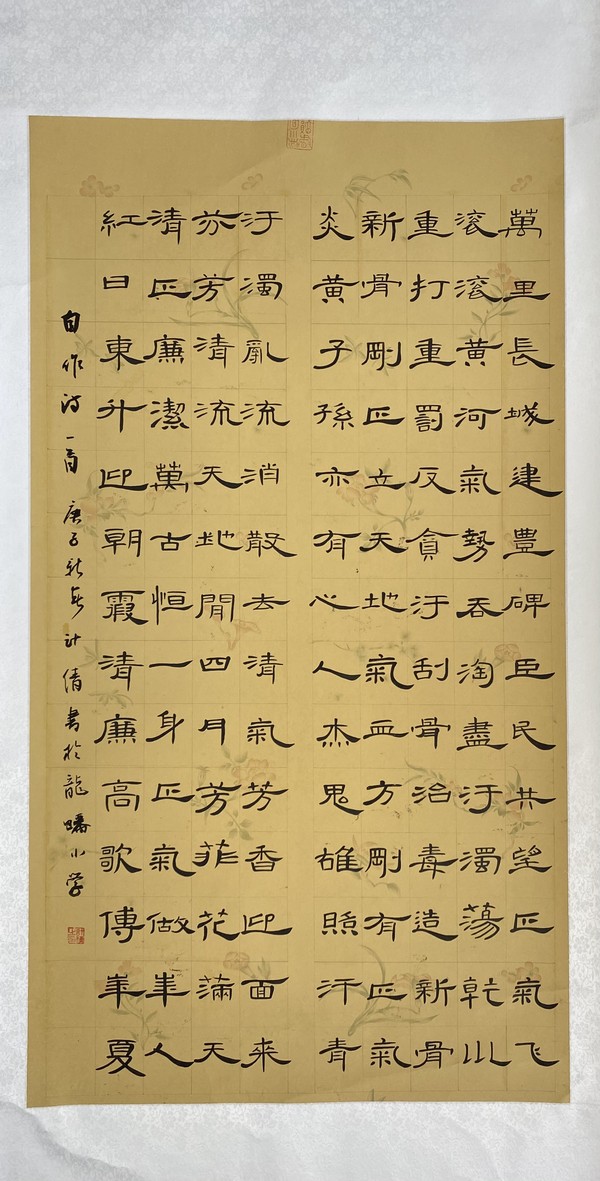 萬里長城建豊碑臣民共望正氣飞
滚滚黄河氣勢吞淘盡汙濁蕩乾巛
重打重罰反貪汙刮骨治毒造新骨
新骨剛正立天地氣血方剛有正氣
炎黃子孫亦有心人杰鬼雄照汗青
汙濁亂流消散去清氣芳香迎面来
芬芳清流天地間四月芳菲花滿天
清正廉潔萬古恒一身正氣做人
紅日東升迎朝霞清廉高歌傳華夏
自作诗一首 庚子新春 计倩書於龍蟠小学